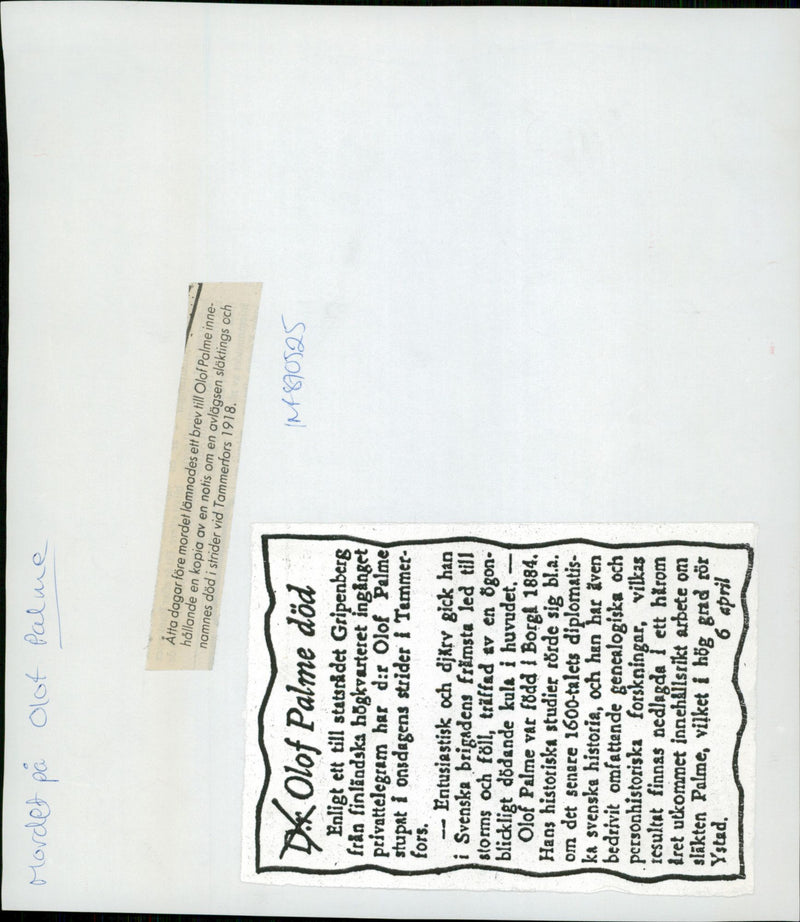 Mordet på Olof Palme
Åtta dagar före mordet lämnades ett brev till Olof Palme inne-
hållande en kopia av en notis om en avlägsen släktings och
namnes död i strider vid Tammerfors 1918.
INT 870525
D:r Olof Palme död
Enligt ett till statsrådet Gripenberg
från finländska högkvarteret ingånget
privattelegram har d:r Olof Palme
stupat i onsdagens strider i Tammer-
fors.
— Entusiastisk och djärv gick han
i Svenska brigadens främsta led till
storms och föll, träffad av en ögon-
blickligt dödande kula i huvudet. —
Olof Palme var född i Borgå 1884.
Hans historiska studier rörde sig bl.a.
om det senare 1600-talets diplomatis-
ka svenska historia, och han har även
bedrivit omfattande genealogiska och
personhistoriska forskningar, vilkas
resultat finnas nedlagda i ett härom
året utkommet innehållsrikt arbete om
släkten Palme, vilket i hög grad rör
Ystad.
6 april